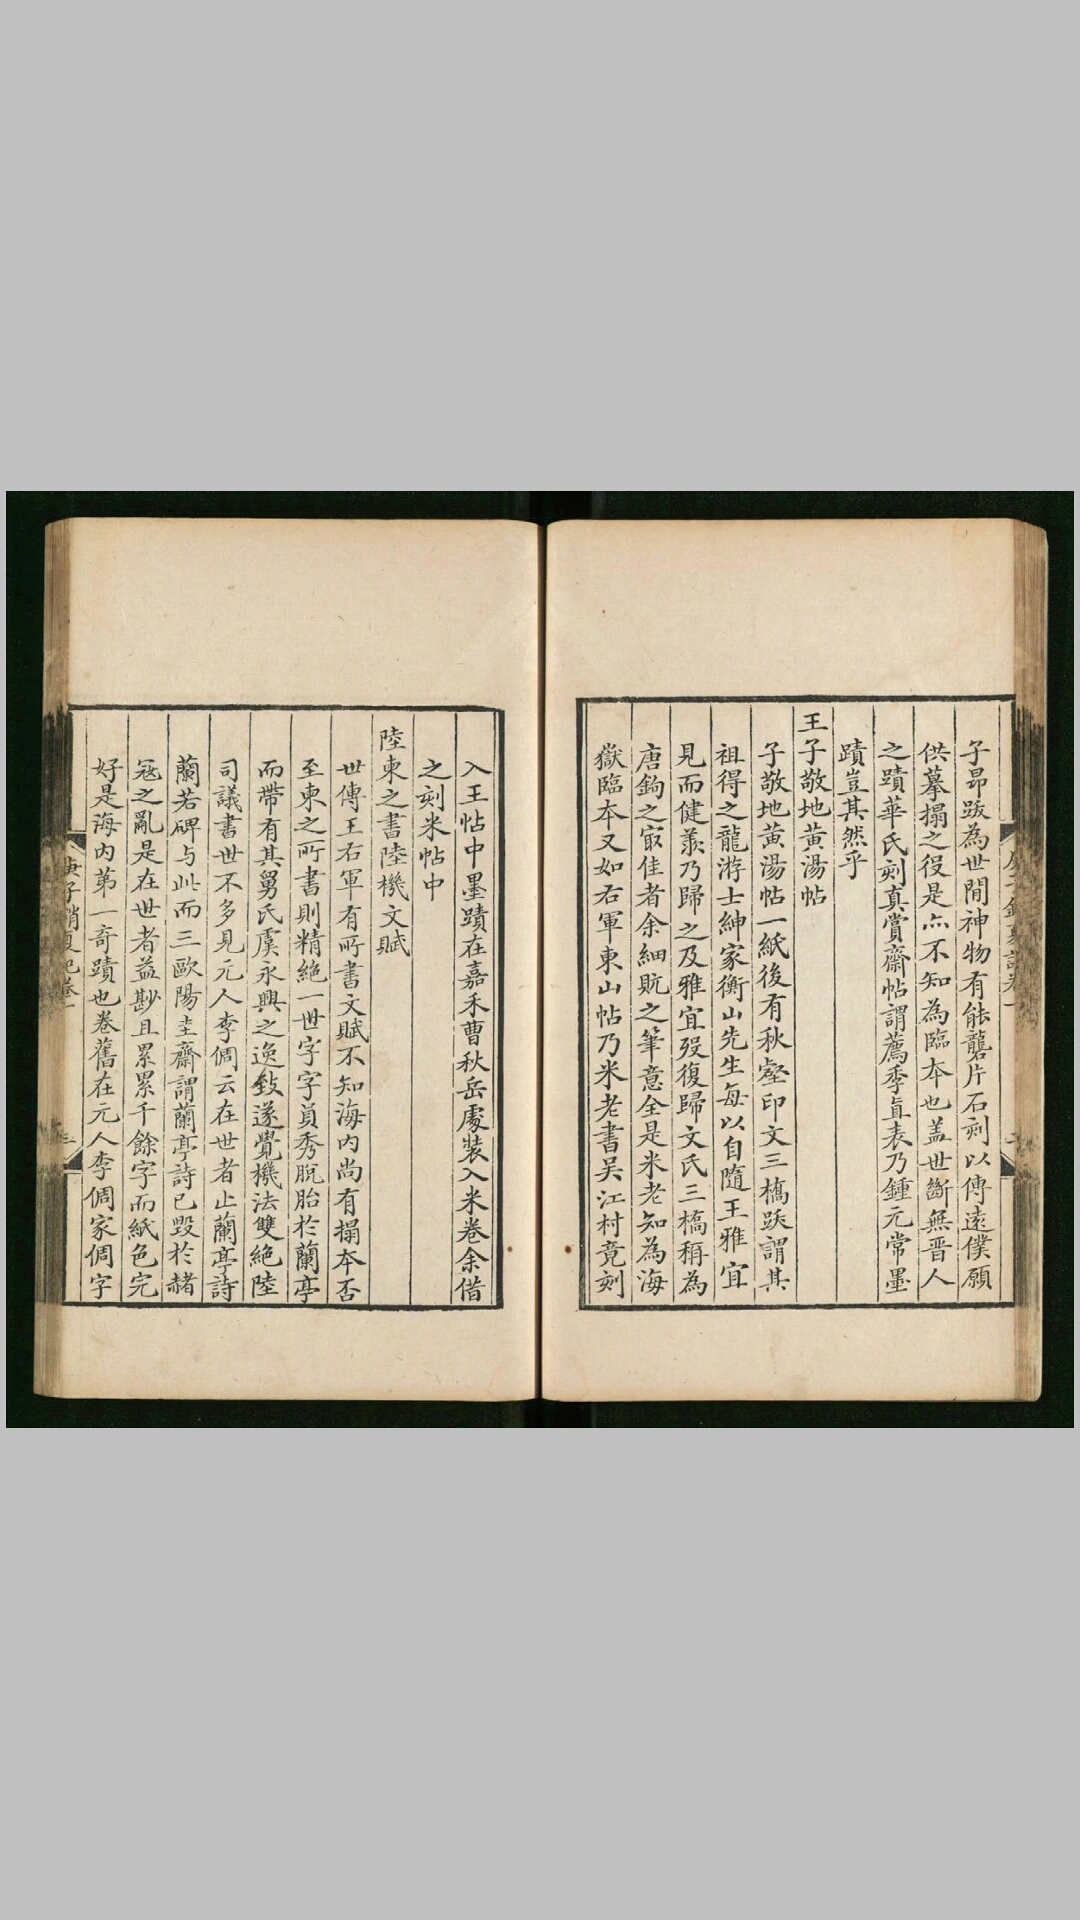 子昂跋為世間神物有能礱片石刻以傳遠僕願
供摹搨之役是亦不知為臨本也盖世斷無晋人
之蹟華氏刻真賞齋帖謂薦季直表乃鍾元常墨
蹟豈其然乎
王子敬地黄湯帖
子敬地黄湯帖一紙後有秋壑印文三橋跋謂其
祖得之龍游士紳家衡山先生每以自隨王雅宜
見而健羨乃歸之及雅宜歿復歸文氏三橋稱為
唐鉤之㝡佳者余細貦之筆意全是米老知為海
嶽臨本又如右軍東山帖乃米老書吴江村竟刻
入王帖中墨蹟在嘉禾曹秋岳處裝入米卷余借
之刻米帖中
陸柬之書陸機文賦
世傳王右軍有所書文賦不知海内尚有搨本否
至柬之所書則精絶一世字字員秀脱胎於蘭亭
而帶有其舅氏虞永興之逸致遂覺機法雙絶陸
司議書世不多見元人李倜云在世者止蘭亭詩
蘭若碑与此而三歐陽圭齋謂蘭亭詩已毀於赭
寇之亂是在世者益尠且累累千餘字而紙色完
好是海内第一奇蹟也卷舊在元人李倜家倜字
庚子銷夏記卷一
三